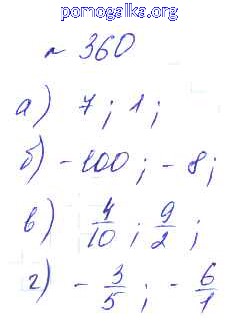 pomogalka.org
~ 360
а) 7 ; 1 ;
б) -100 ; - 8 ;
в) 4/10 ; 9/2 ;
г) - 3/5 ; - 6/1